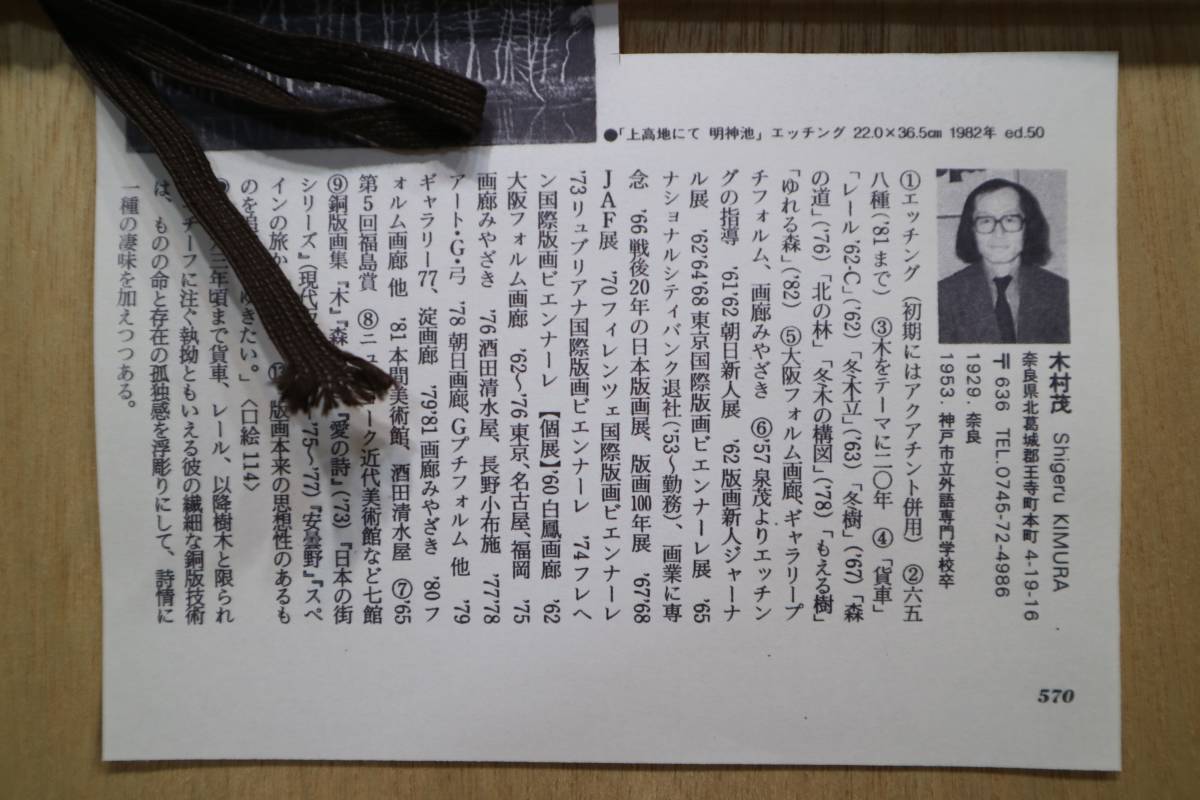 ●「上高地にて 明神池」エッチング 22.0×36.5㎝ 1982年 ed.50
木村茂 Shigeru KIMURA
奈良県北葛城郡王寺町本町 4-19-16
〒636 TEL.0745-72-4986
1929. 奈良
1953. 神戸市立外語専門学校卒
①エッチング（初期にはアクアチント併用）②六五
八種（'81まで）③木をテーマに二〇年 ④「貨車」
「レール'62-C」（'62）「冬木立」（'63）「冬樹」（'67）「森
の道」（'76）「北の林」「冬木の構図」（'78）「もえる樹」
「ゆれる森」（'82）⑤大阪フォルム画廊、ギャラリープ
チフォルム、画廊みやざき ⑥'57 泉茂よりエッチン
グの指導 '61'62 朝日新人展 '62 版画新人ジャーナ
ル展 '62'64'68 東京国際版画ビエンナーレ展 '65
ナショナルシティバンク退社（'53〜勤務）、画業に専
念 '66 戦後20年の日本版画展、版画100年展 '67'68
JAF展 '70 フィレンツェ国際版画ビエンナーレ
'73 リュブリアナ国際版画ビエンナーレ '74 フレヘ
ン国際版画ビエンナーレ 【個展】'60 白鳳画廊 '62
大阪フォルム画廊 '62〜'76 東京、名古屋、福岡 '75
画廊みやざき '76 酒田清水屋、長野小布施 '77'78
アート・G・弓 '78 朝日画廊、Gプチフォルム 他 '79
ギャラリー77、淀画廊 '79'81 画廊みやざき '80 フ
ォルム画廊 他 '81 本間美術館、酒田清水屋 ⑦'65
第5回福島賞 ⑧ニューヨーク近代美術館など七館
⑨銅版画集『木』『森 『愛の詩』（'73）『日本の街
シリーズ』（現代 '75〜'77）『安曇野』『スペ
インの旅か 版画本来の思想性のあるも
のを追 ゆきたい。」〈口絵114〉
三年頃まで貨車、レール、以降樹木と限られ
チーフに注ぐ執拗ともいえる彼の繊細な銅版技術
は、ものの命と存在の孤独感を浮彫りにして、詩情に
一種の凄味を加えつつある。
570